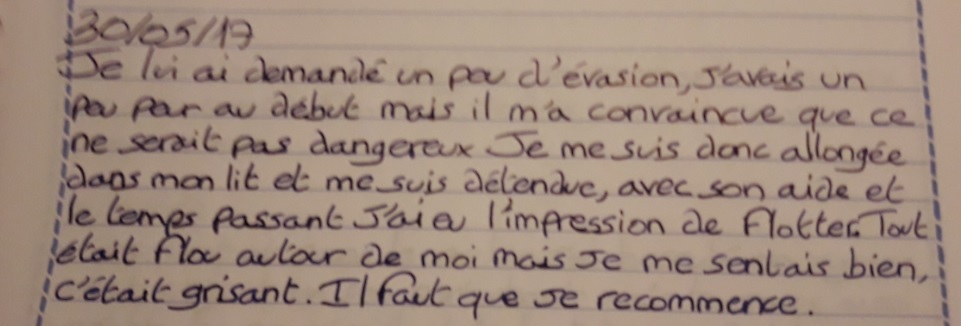 30/05/17
Je lui ai demandé un peu d'évasion, J'avais un
peu peur au début mais il m'a convaincue que ce
ne serait pas dangereux Je me suis donc allongée
dans mon lit et me suis détendue, avec son aide et
le temps passant J'ai eu l'impression de flotter. Tout
était flou autour de moi mais Je me sentais bien,
c'était grisant. Il faut que Je recommence.